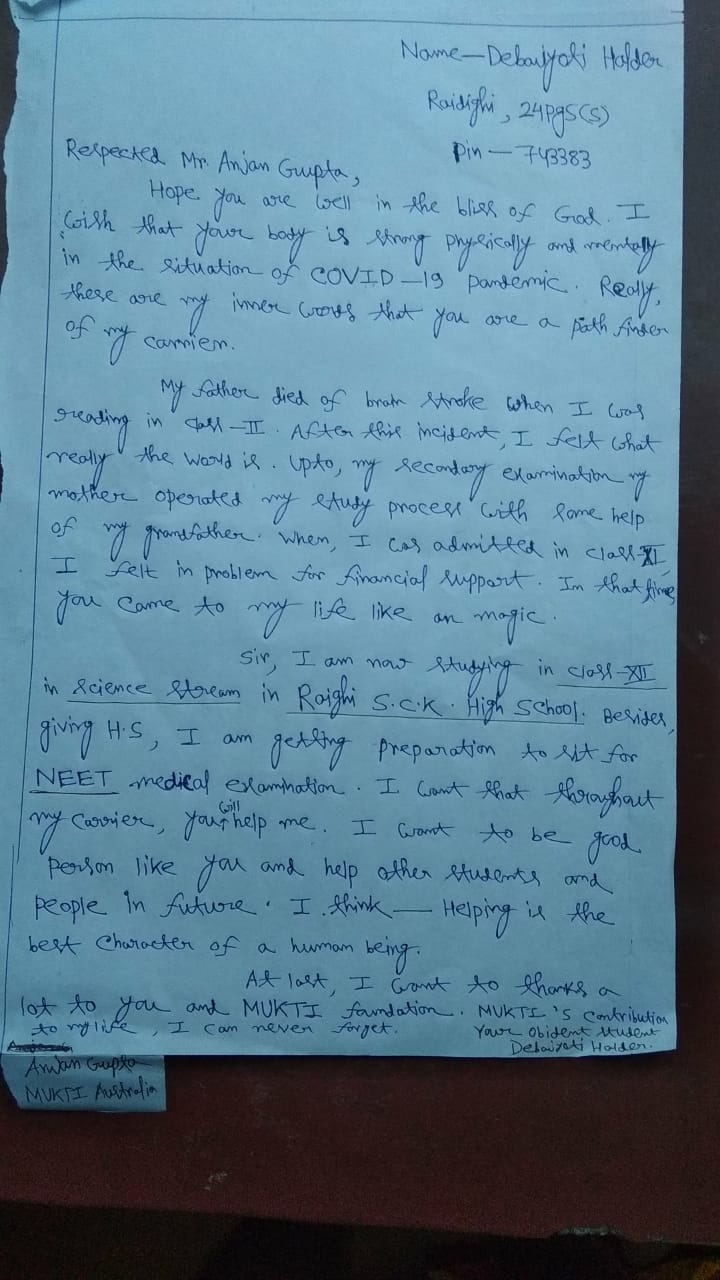 Name—Debaijyoti Halder
Raidighi, 24Pgs(S)
Pin — 743383
Respected Mr. Anjan Guupta,
Hope you are well in the bliss of God. I
wish that your body is strong physically and mentally
in the situation of COVID-19 pandemic. Really,
these are my inner words that you are a path finder
of my carrier.
My father died of brain stroke when I was
reading in class-II. After this incident, I felt what
really the world is. Upto, my secondary examination my
mother operated my study process with some help
of my grandfather. When, I was admitted in class-XI,
I felt in problem for financial support. In that time,
you came to my life like an magic.
Sir, I am now studying in class-XII
in science stream in Raighi S.C.K. High School. Besides,
giving H.S, I am getting preparation to sit for
NEET medical examination. I want that throughout
my carrier, you will help me. I want to be good
person like you and help other students and
people in future. I think — Helping is the
best character of a human being.
At last, I want to thanks a
lot to you and MUKTI foundation. MUKTI's contribution
to my life, I can never forget.
Your Obident Student
Debaijyoti Halder.
Anjan Gupta
MUKTI Australia